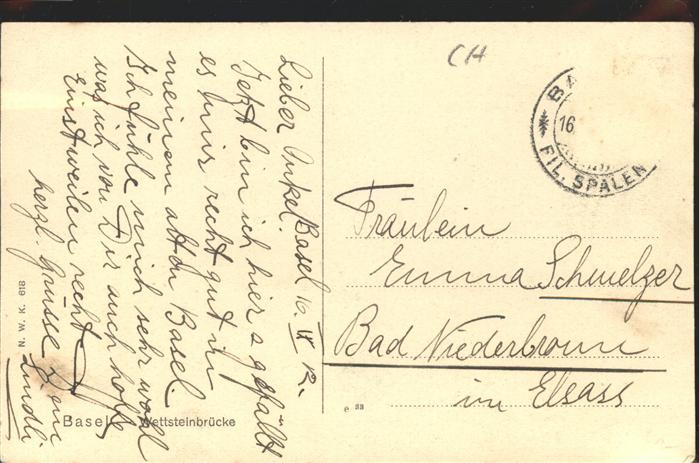 CH
BA
16
FIL. SPALEN
Basel 16 IX 12.
Lieber Onkel.
Jetzt bin ich hier & gefällt
es mir recht gut in
meinem alten Basel.
Ich fühle mich sehr wohl
was ich von Dir auch hoffe
Einstweilen recht
herzl. Grüsse
Fräulein
Emma Schmelzer
Bad Niederbronn
im Elsass
Basel Wettsteinbrücke
N. W. K. 918